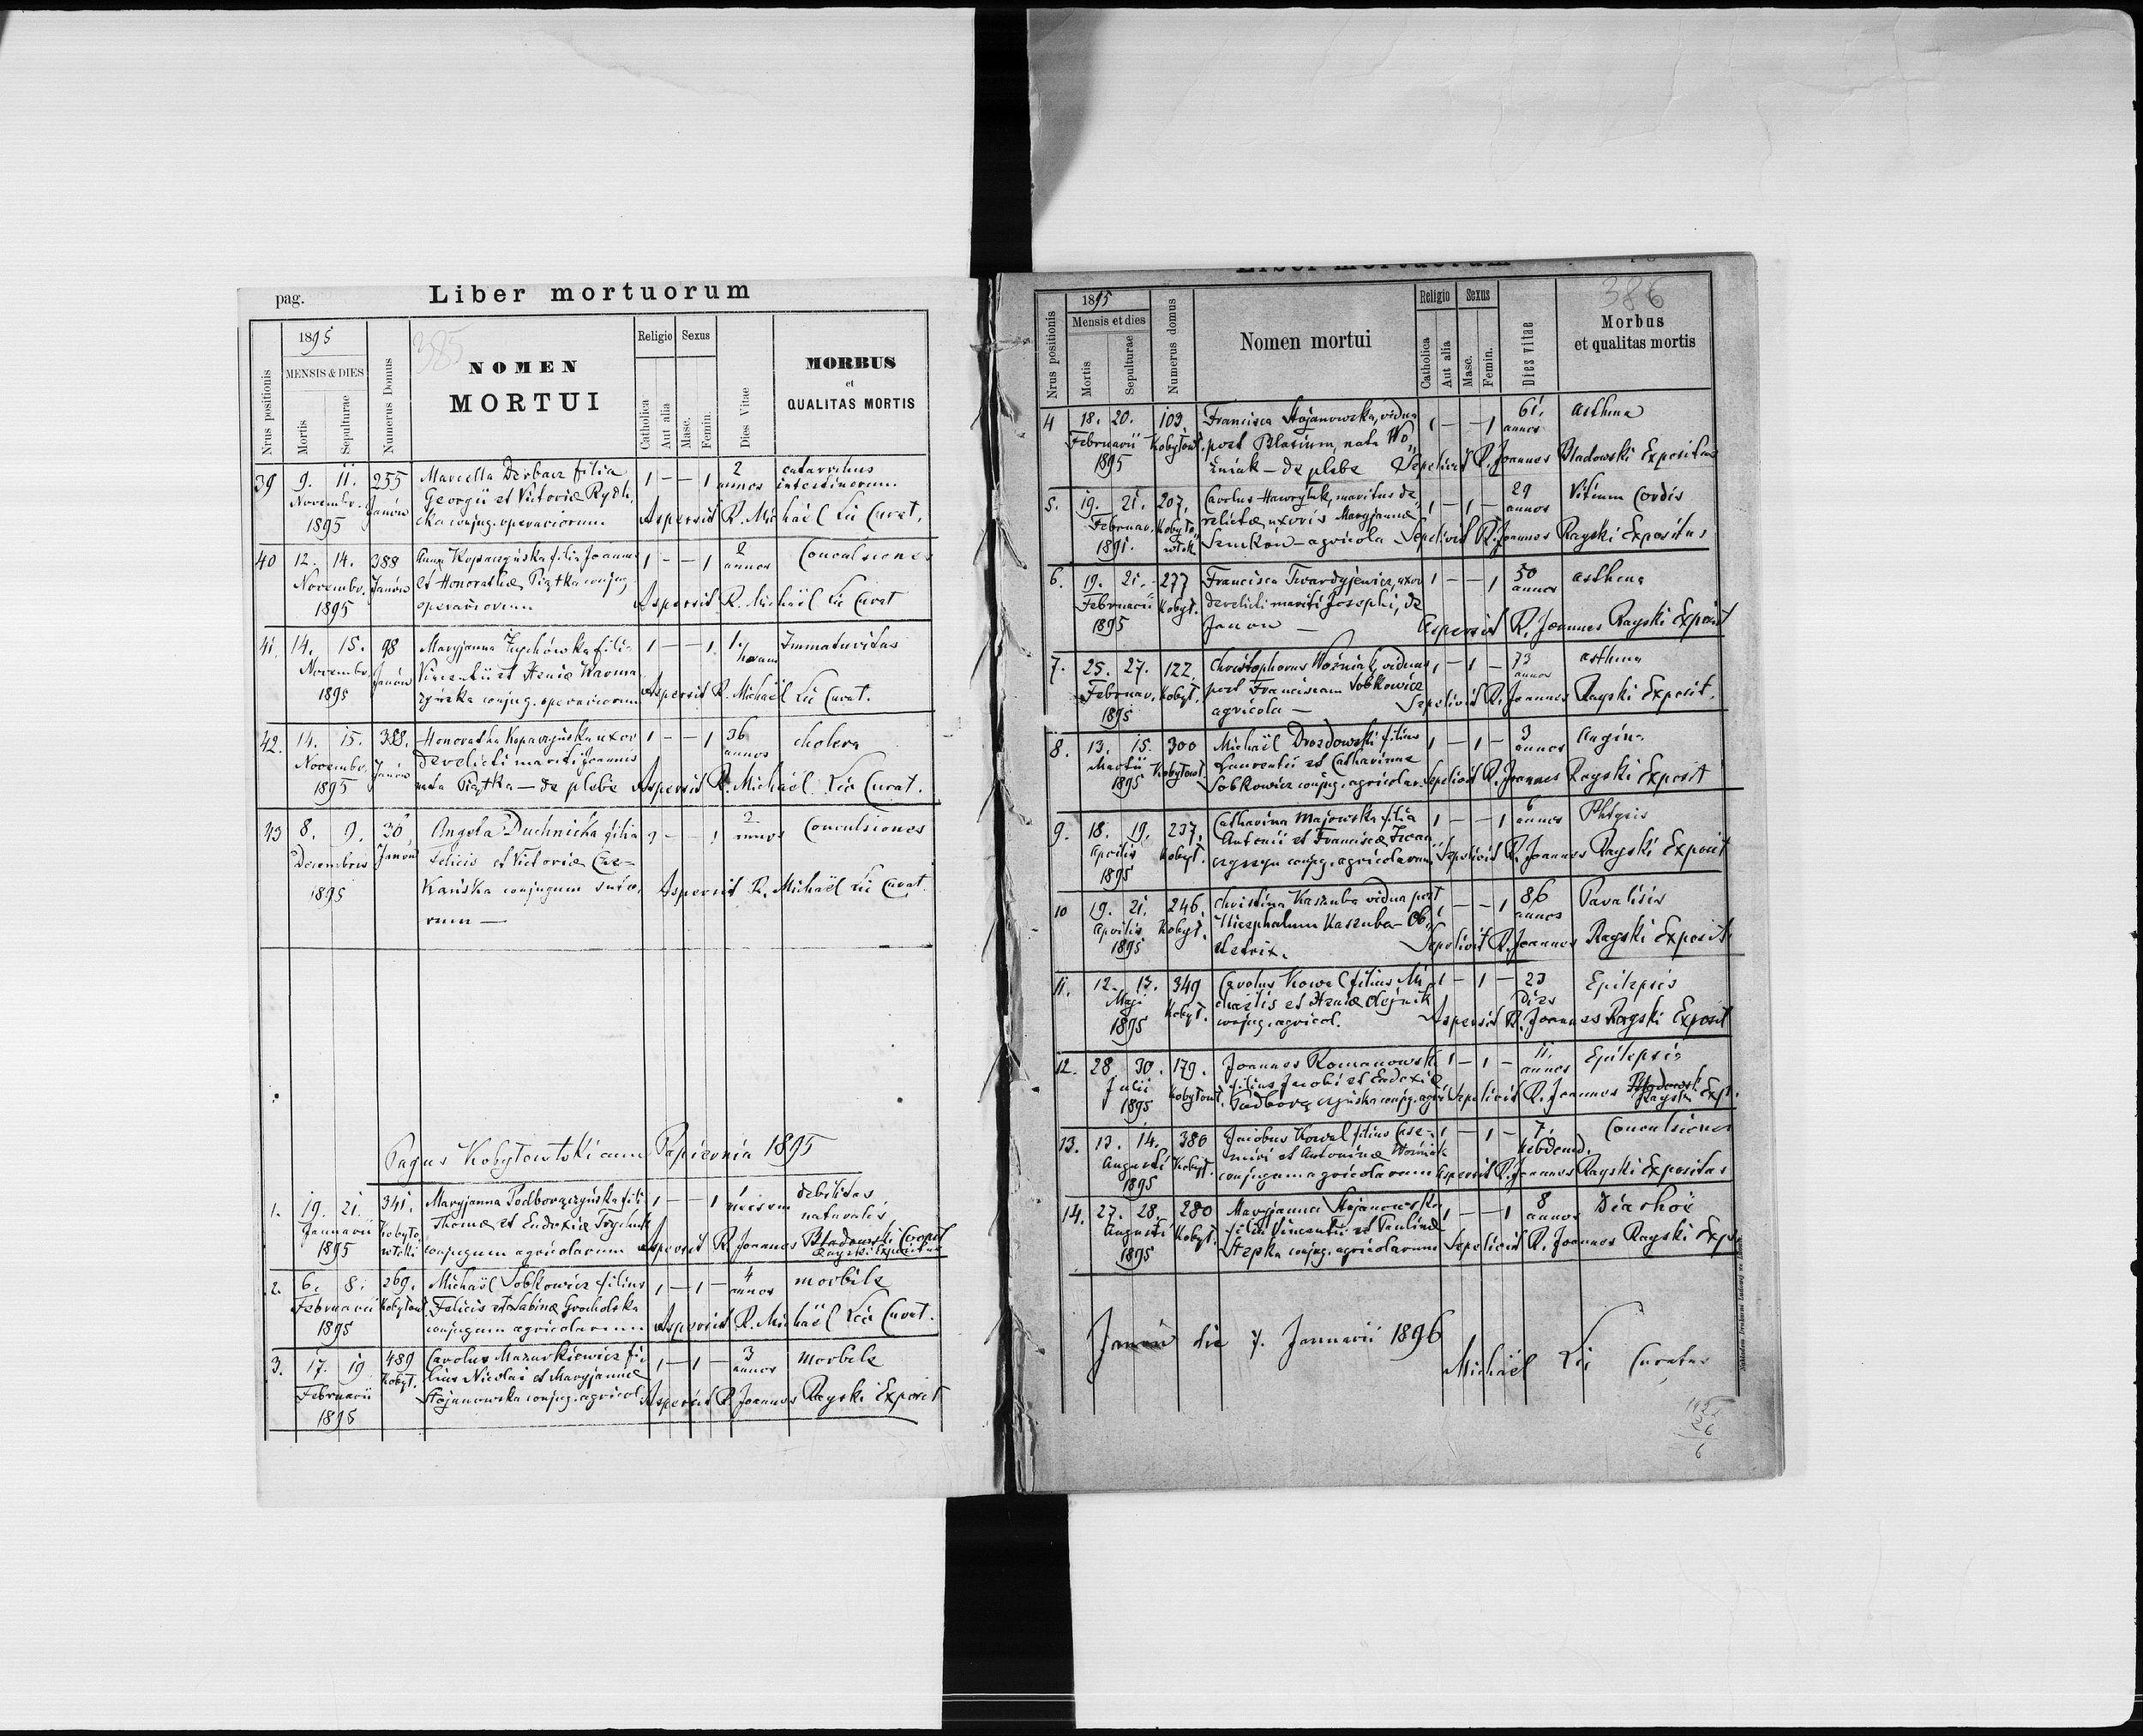 pag.
Liber mortuorum
385
1895
MENSIS & DIES
Nrus positionis
Mortis
Sepulturae
Numerus Domus
NOMEN
MORTUI
Religio
Sexus
Catholica
Aut alia
Masc.
Femin.
Dies Vitae
MORBUS
et
QUALITAS MORTIS
39 9. 11. 255 Marcella Derbacz filia 1 — — 1 2 catarrhus
Novembr. Janów Georgii et Victoriæ annos intestinorum
1895 conjug. operariorum Aspersit R. Michaël Lic Curat.
40 12. 14. 388 Anna filia Joannis 1 — — 1 2 Convulsiones
Novembr. Janów et Honorathæ Piątka conjug. annos
1895 operariorum Aspersit R. Michaël Lic Curat
41. 14. 15. 98 Maryjanna Zychówka fili- 1 — — 1. 1. Immaturitas
Novembr. Janów Vincentii et horam
1895 conjug. operariorum Aspersit R. Michaël Lic Curat.
42. 14. 15. 388. Honoratha uxor 1 — — 1 36 cholera
Novembr. Janów derelicti mariti Joannis annos
1895 nata Piątka — de plebe Aspersit R. Michaël Lic Curat.
43 8. 9. 36 Angela Duchnicka filia 1 — — 1 2 Convulsiones
Decembris Janów Felicis et Victoriæ annos
1895 conjugum Aspersit R. Michaël Lic Curat.
rum —
Pagus Kobyłowłoki cum Papiernia 1895
1. 19. 21. 341. Maryjanna Podborączyńska fili- 1 — — 1 1 debilitas
Januarii Kobyło- Thomæ et Eudoxiæ naturalis
1895 włoki conjugum agricolarum Aspersit R. Joannes Bladowski
Rayski Expositus
2. 6. 8. 269. Michaël Sobkowicz filius 1 — 1 — 4 morbile
Februarii Kobyłowł. Felicis et Sabinæ Grocholska annos
1895 conjugum agricolarum Aspersit R. Michaël Lic Curat.
3. 17. 19 489 Carolus Mazurkiewicz fi- 1 — 1 — 3 morbile
Februarii Kobył. lius Nicolai et Maryjannæ annos
1895 Stojanowska conjug. agricol. Aspersit R. Joannes Rayski Exposit
Liber mortuorum
386
1895
Mensis et dies
Nrus positionis
Mortis
Sepulturae
Numerus domus
Nomen mortui
Religio
Sexus
Catholica
Aut alia
Masc.
Femin.
Dies vitae
Morbus
et qualitas mortis
4 18. 20. 103. Francisca Stojanowska, vidua 1 — — 1 61. asthma
Februarii Kobyłowł. post Blasium, nata Wo- annos
1895 źniak — de plebe Sepelivit R. Joannes Bladowski Expositus
5. 19. 21. 207. Carolus Hawryluk, maritus de- 1 — 1 — 29 Vitium Cordis
Februar. Kobyło- relictæ uxoris Maryjannæ annos
1895. włok Szmikón — agricola Sepelivit R. Joannes Rayski Expositus
6. 19. 21. 277 Francisca Twardyjewicz, uxor 1 — — 1 50 asthma
Februarii Kobył. derelicti mariti Josephi, de annos
1895 Janow — Aspersit R. Joannes Rayski Exposit
7. 25. 27. 122. Christophorus Woźniak, viduus 1 — 1 — 73 asthma
Februar. Kobył. post Franciscam Sobkowicz annos
1895 agricola — Sepelivit R. Joannes Rayski Exposit.
8. 13. 15. 300 Michaël Drozdowski filius 1 — 1 — 3 angina
Martii Kobyłowł. Laurentii et Catharinæ annos
1895 Sobkowicz conjug. agricolar. Sepelivit R. Joannes Rayski Exposit
9. 18. 19. 237. Catharina Majowska filia 1 — — 1 6 Phtysis
Aprilis Kobył. Antonii et Franciscæ annos
1895 conjug. agricolarum Sepelivit R. Joannes Rayski Exposit
10 19. 21. 246. Christina Kaszuba vidua post 1 — — 1 86 Paralisis
Aprilis Kobył. Kaszuba — Ob- annos
1895 stetrix. Sepelivit R. Joannes Rayski Exposit.
11. 12. 13. 349 Carolus Kowal filius Mi- 1 — 1 — 23 Epilepsis
Maji Kobył. chaëlis et Olejnik dies
1895 conjug. agricol. Aspersit R. Joannes Rayski Exposit
12. 28. 30. 179. Joannes Romanowski 1 — 1 — 11. Epilepsia
Julii Kobyłowł. filius Jacobi et Eudoxiæ annos
1895 Podborączyńska conjug. agri Sepelivit R. Joannes Bladowski
Rayski Exp.
13. 13. 14. 380 Jacobus Kowal filius Case- 1 — 1 — 7. Convulsiones
Augusti Kobył. miri et Antoninæ Woźniak hebdomd.
1895 conjugum agricolarum Aspersit R. Joannes Rayski Expositus
14. 27. 28. 280 Maryjanna Stojanowska 1 — — 1 8 Diarhoë
Augusti Kobył. filia Vincentii et Paulinæ annos
1895 Stepka conjug. agricolarum Sepelivit R. Joannes Rayski Exp.
Janów die 7. Januarii 1896
Michaël Lic Curatus